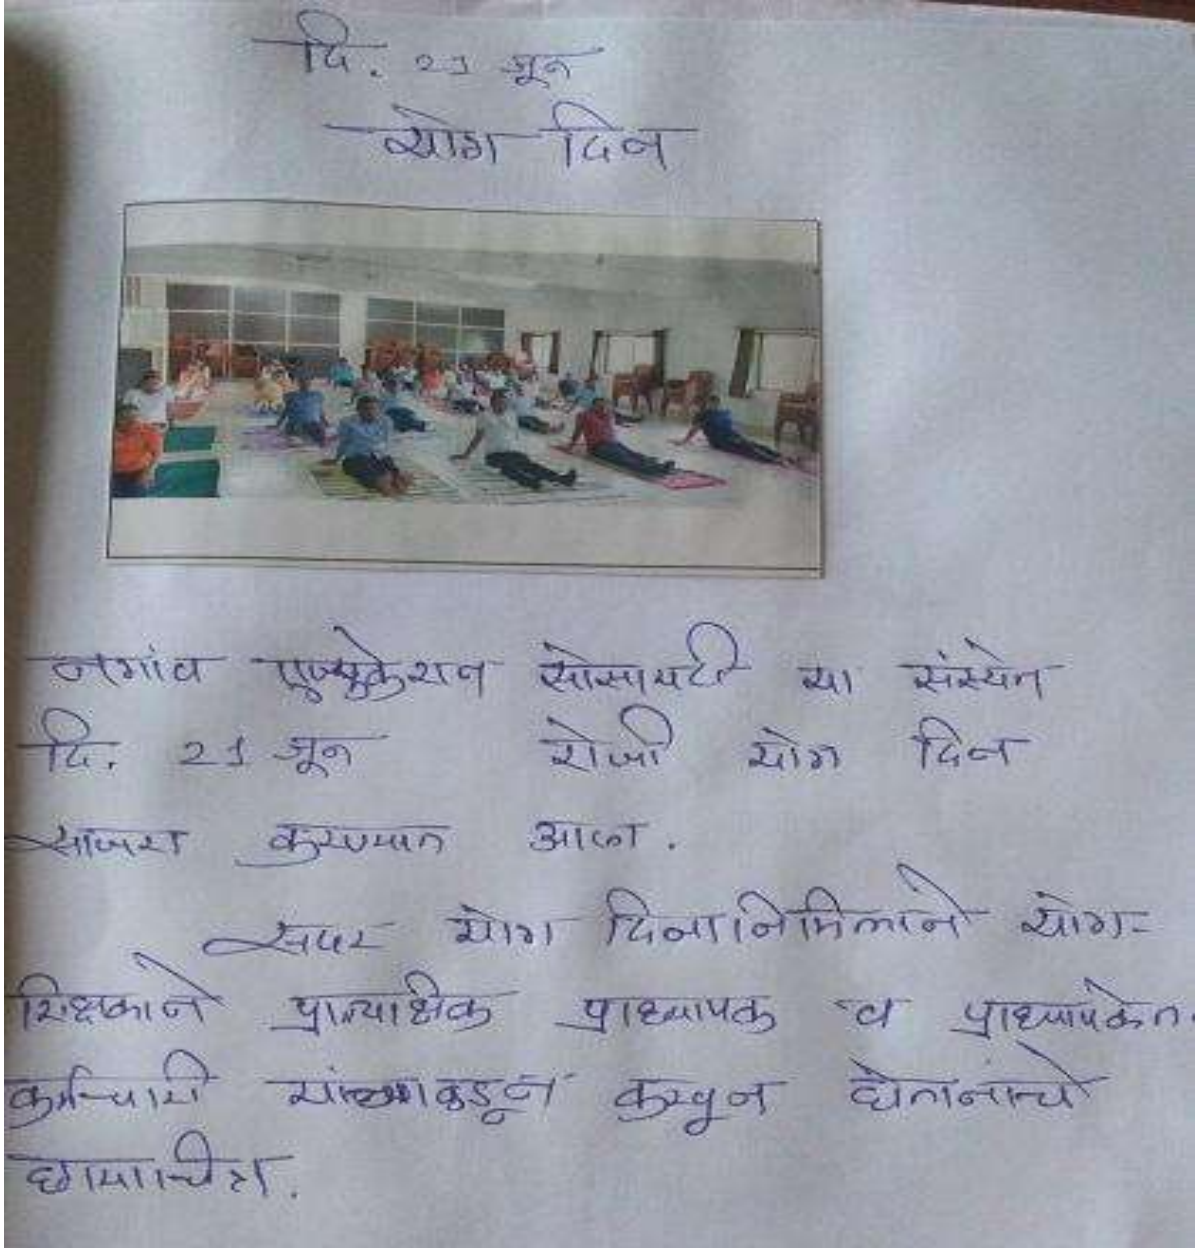 दि. २१ जून
योग दिन
नगांव एज्युकेशन सोसायटी या संस्थेत
दि. 21 जून रोजी योग दिन
साजरा करण्यात आला.
सदर योग दिनानिमित्ताने योग-
शिक्षकाने प्रात्याक्षिक प्राध्यापक व
कर्मचारी यांच्याकडून करवून घेतानांचे
छायाचित्र.